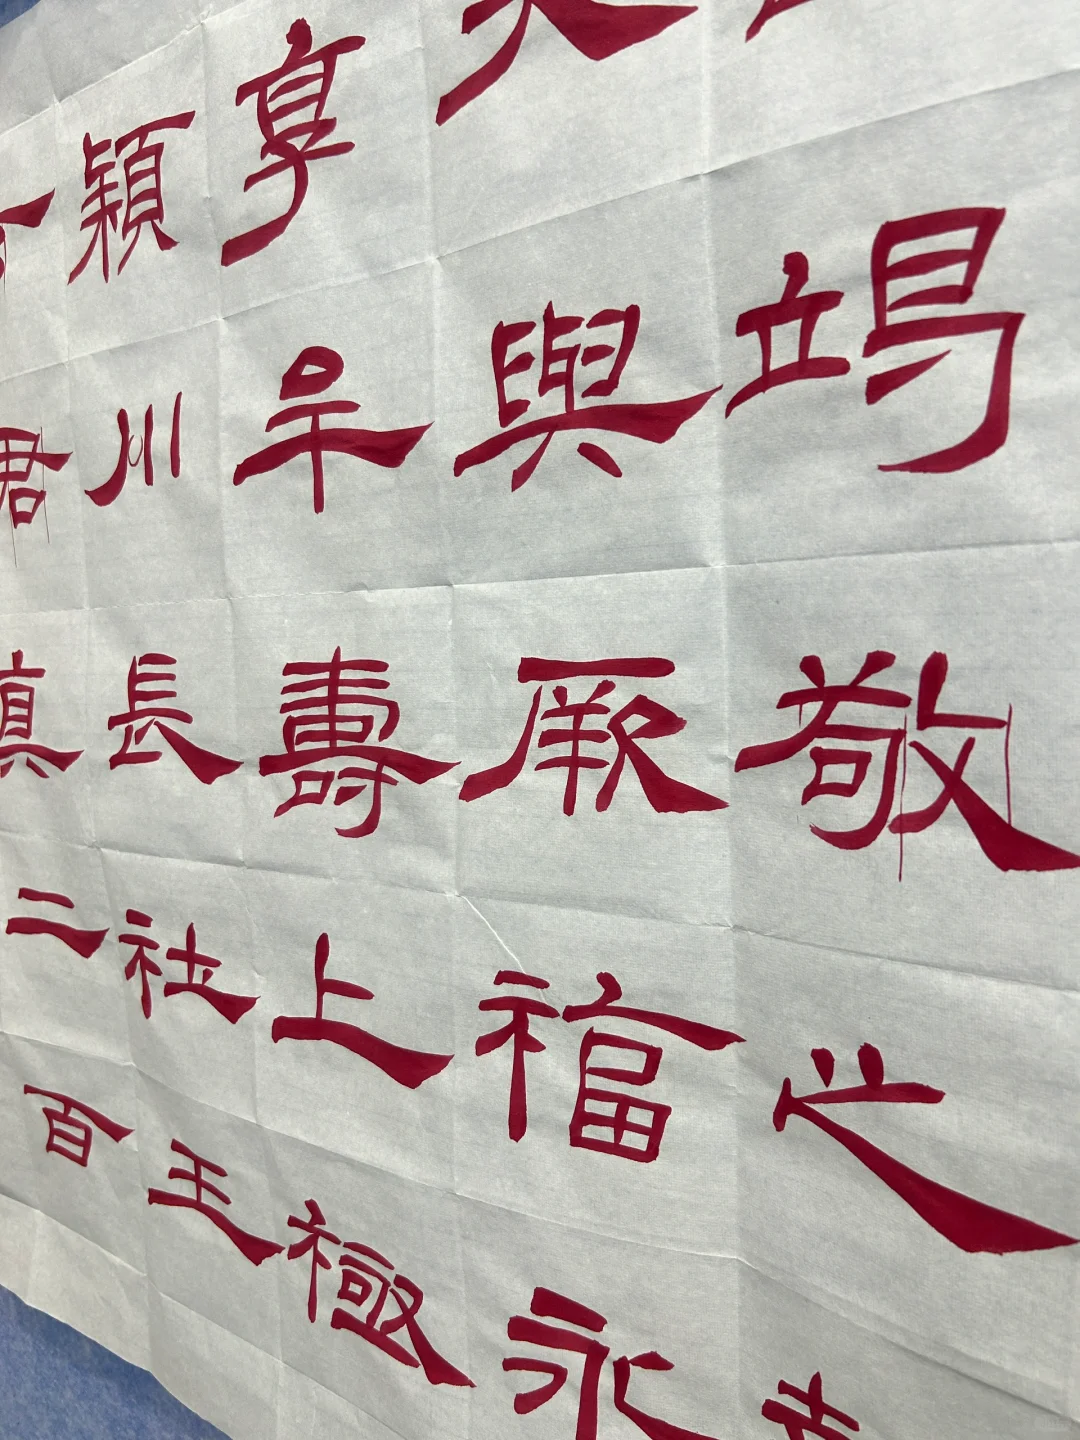 竭敬之
與厥福永
享牟壽上極
穎川長社王
君真二百